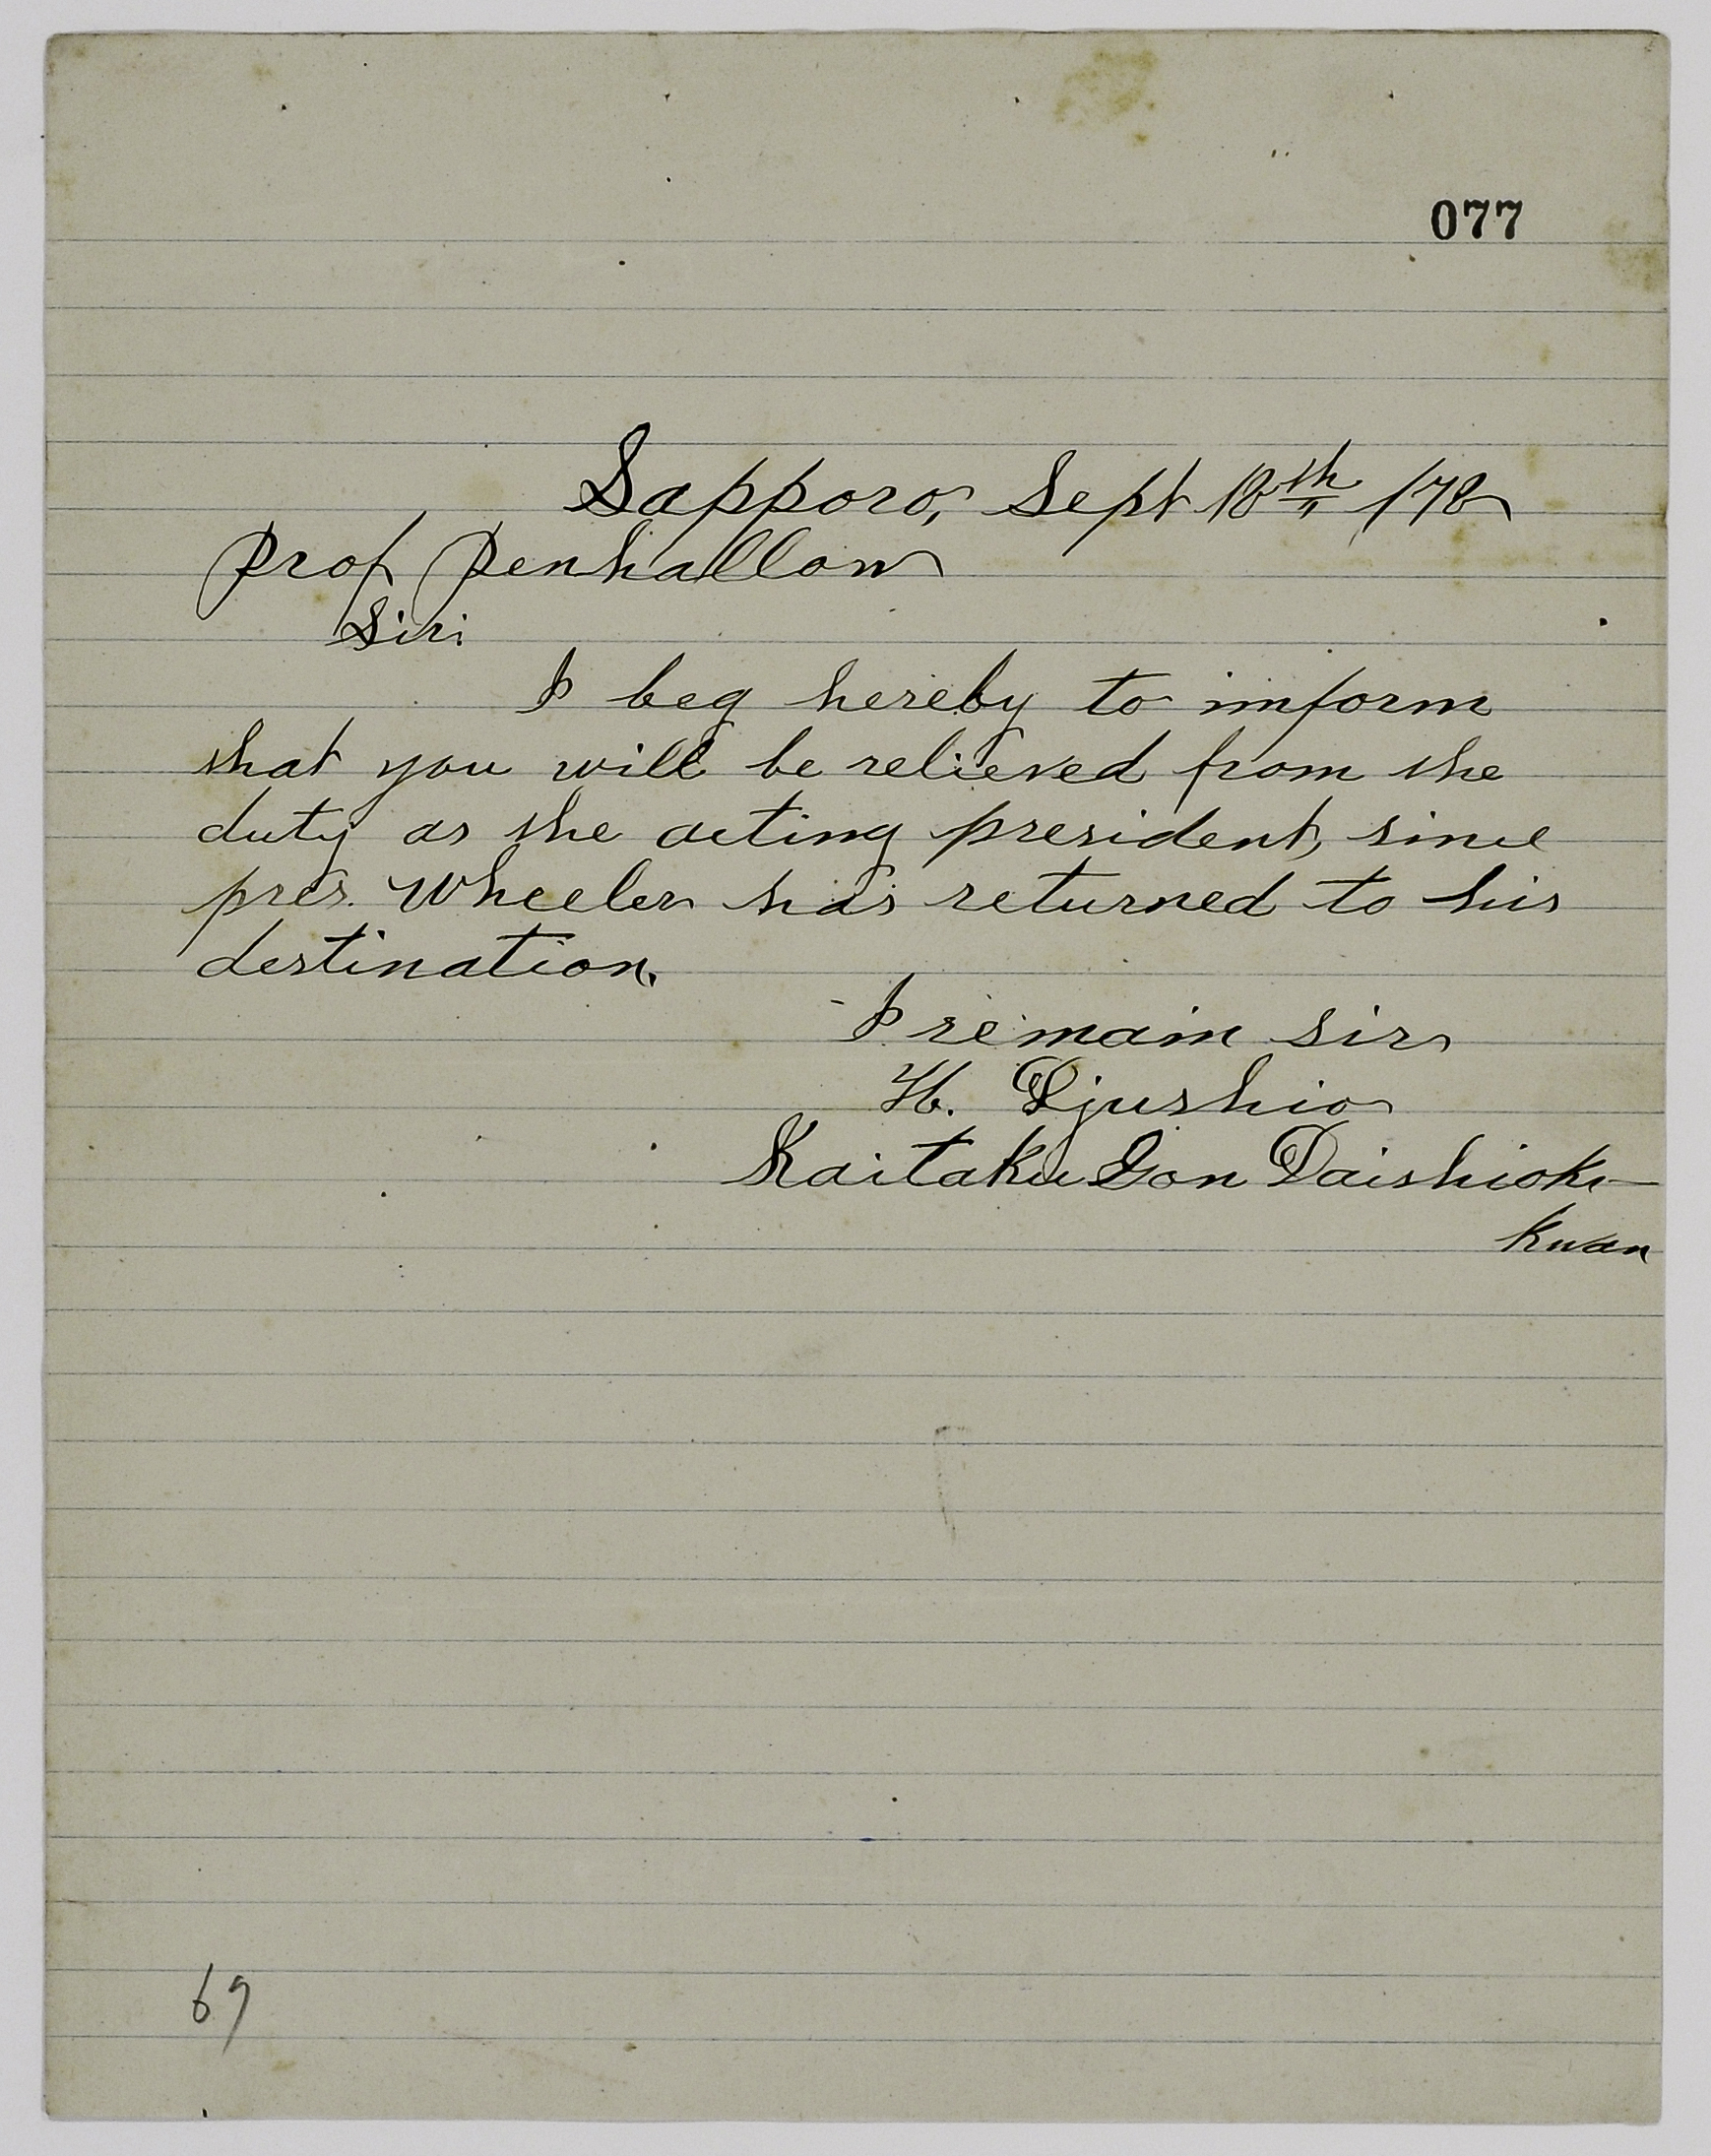 077
Sapporo, Sept 18th /78
Prof Penhallow
Sir:
I beg hereby to inform
that you will be relieved from the
duty as the acting president, since
pres. Wheeler has returned to his
destination.
I remain sir
H. Djushio
Kaitaku Gon Daishioki-
kwan
69